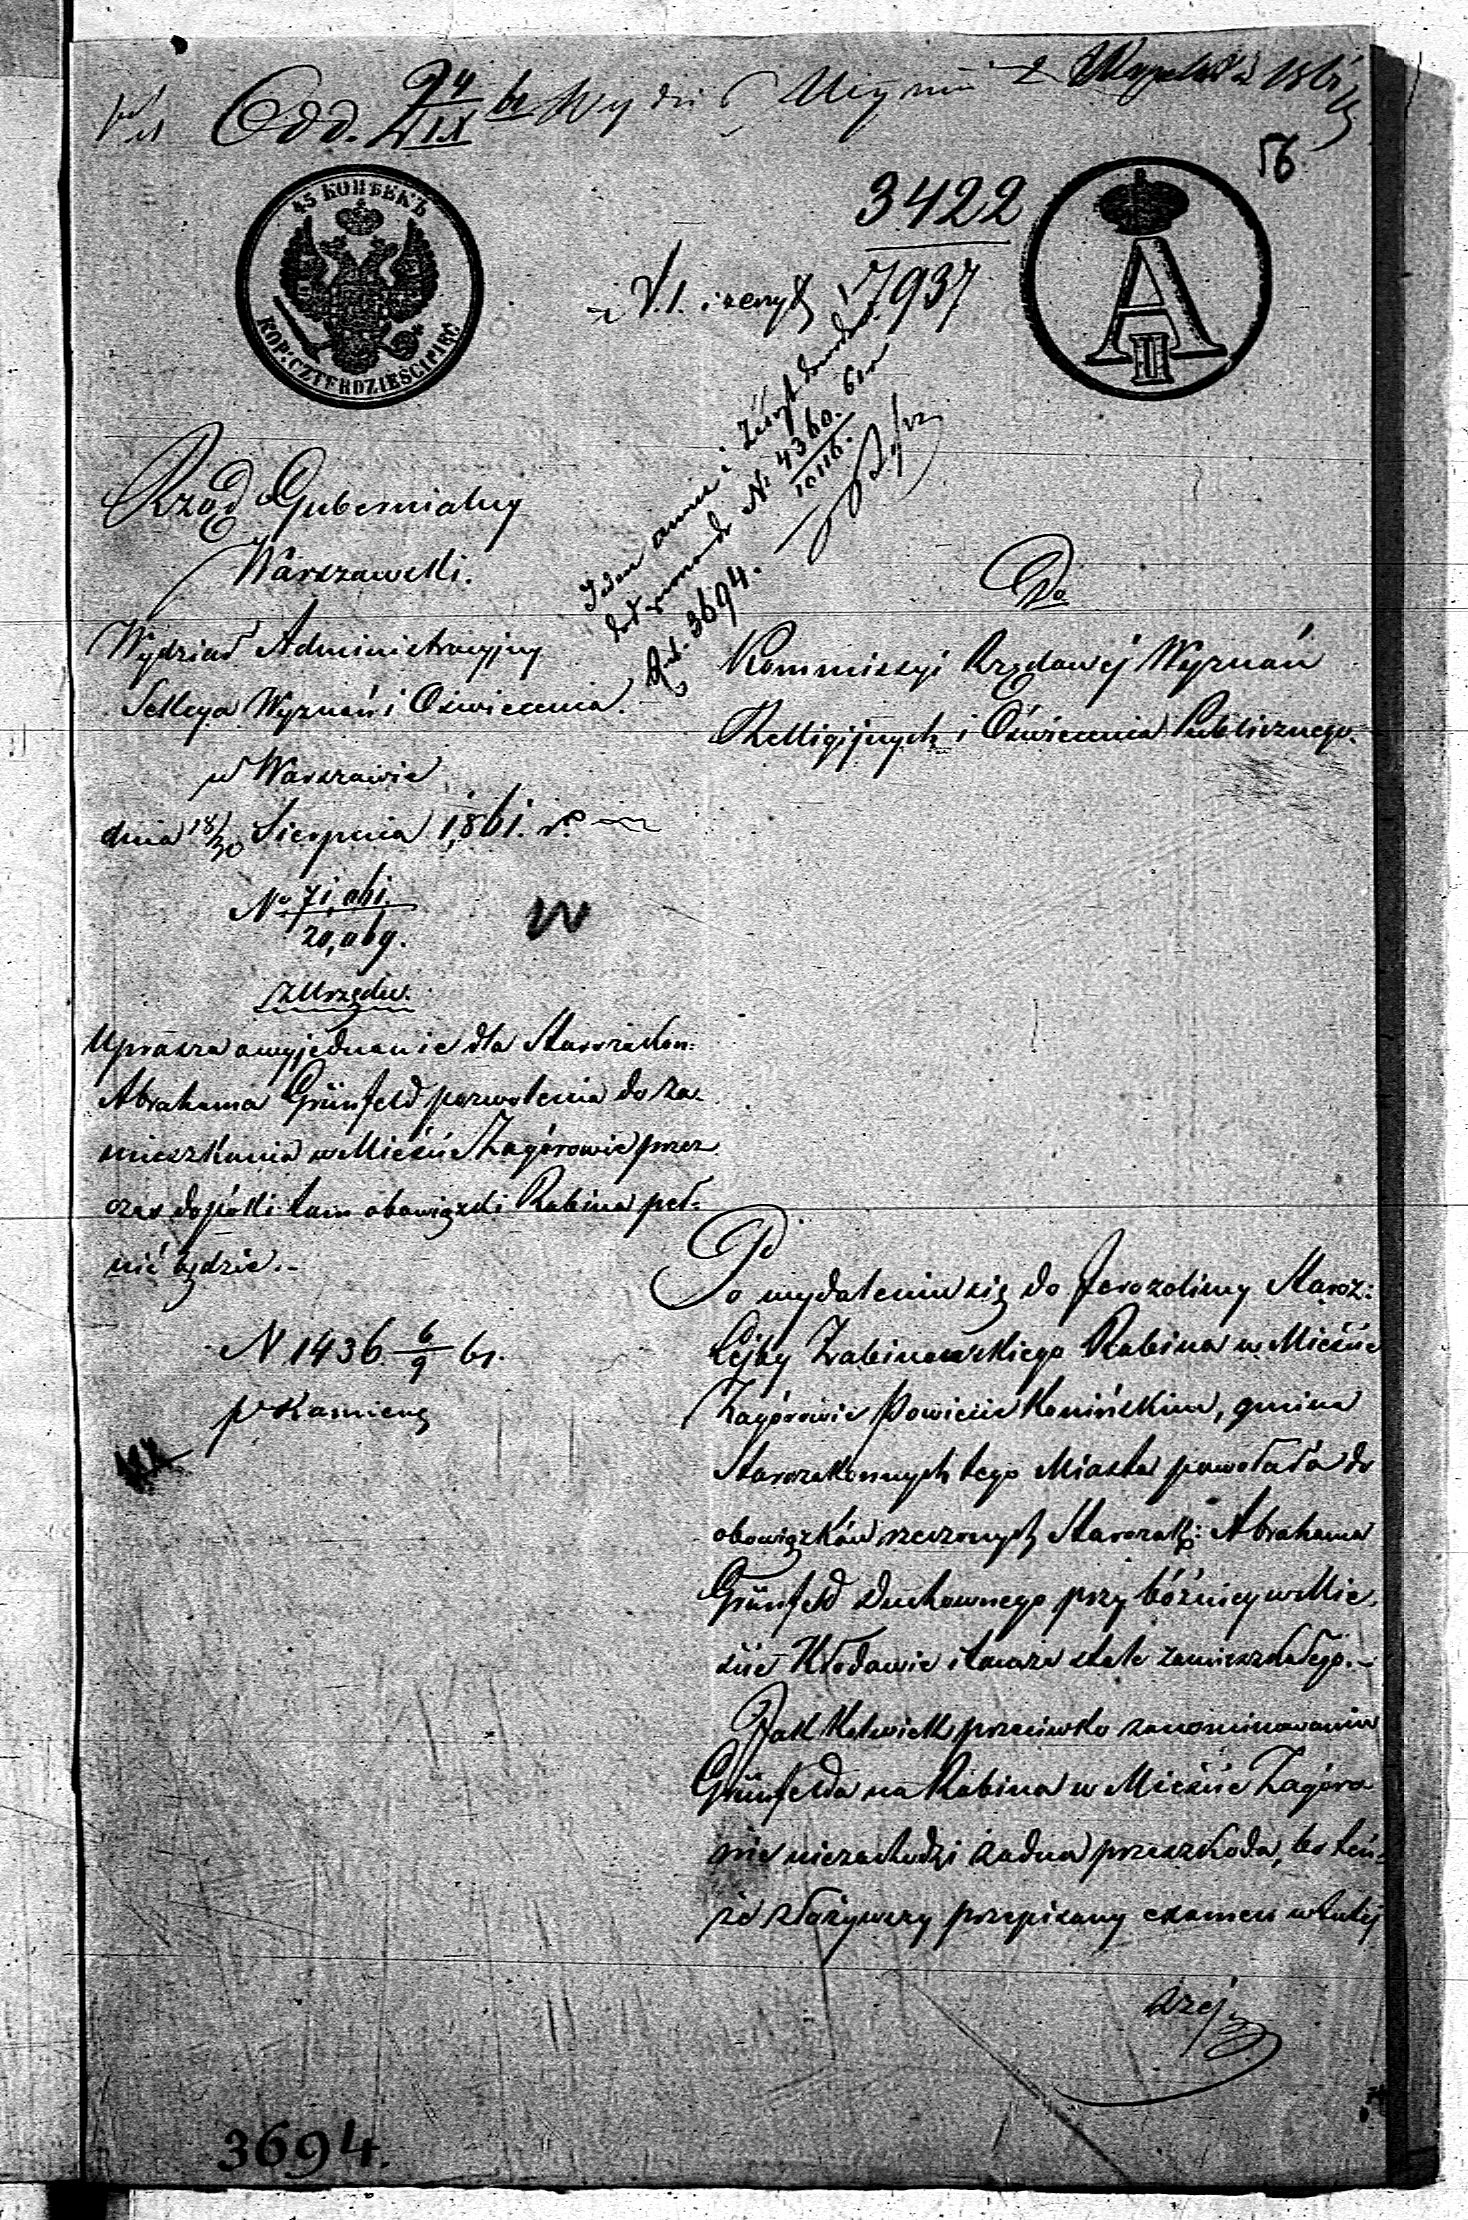 Odd. 24/IX 61
56.
45 КОПѢЕКЪ
KOP: CZTERDZIEŚCI PIĘĆ
A II
3422
7937
Rząd Gubernialny
Warszawski.
Wydział Administracyjny
Sekcya Wyznań i Oświecenia.
w Warszawie
dnia 18/30 Sierpnia 1861. r.
No 71,061.
20,069.
z Urzędu.
Uprasza o wyjednanie dla Starozakon:
Abrahama Grünfeld pozwolenia do za-
mieszkania w Mieście Zagórowie przez
czas dopóki tam obowiązki Rabina peł-
nić będzie.-
N 1436 6/9 61.
p Kamieng
No 4360. 61
10116.
Rut. 3694.
Do
Kommissyi Rządowéj Wyznań
Relligijnych i Oświecenia Publicznego.
Po wydaleniu się do Jerozolimy Staroz:
Lejby Zabinowskiego Rabina w Mieście
Zagórowie Powiecie Konińskim, gmina
Starozakonnych tego Miasta powołała do
obowiązków rzeczonych Starozak: Abrahama
Grünfeld Duchownego przy bóżnicy w Mie-
ście Kłodawie i tamże stale zamieszkałego.-
Jakkolwiek przeciwko zanominowaniu
Grünfelda na Rabina w Mieście Zagóro-
wie niezachodzi żadna przeszkoda, bo ten-
że złożywszy przepisany examen w tutej
széj
3694.